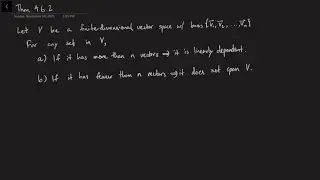 Thm 4.6.2
Let V be a finite-dimensional vector space w/ basis {v₁, v₂, ..., vₙ}
For any set in V,
a) If it has more than n vectors → it is linearly dependent.
b) If it has fewer than n vectors → it does not span V.